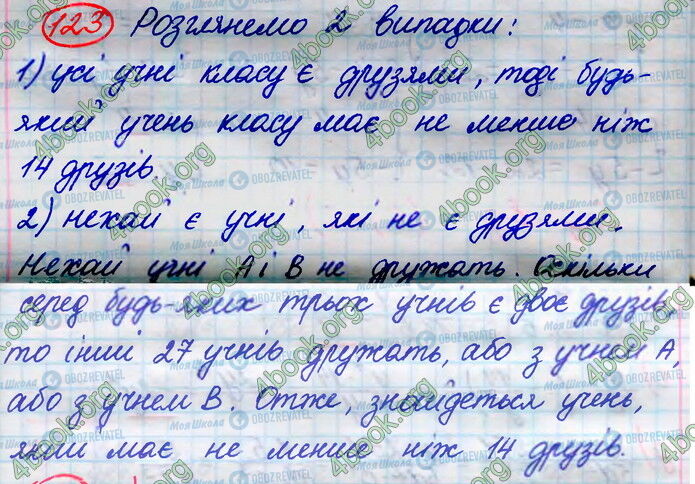 123 Розглянемо 2 випадки:
1) усі учні класу є друзями, тоді будь-
який учень класу має не менше ніж
14 друзів.
2) нехай є учні, які не є друзями.
Нехай учні А і В не дружать. Оскільки
серед будь-яких трьох учнів є двоє друзів,
то інші 27 учнів дружать, або з учнем А,
або з учнем В. Отже, знайдеться учень,
який має не менше ніж 14 друзів.